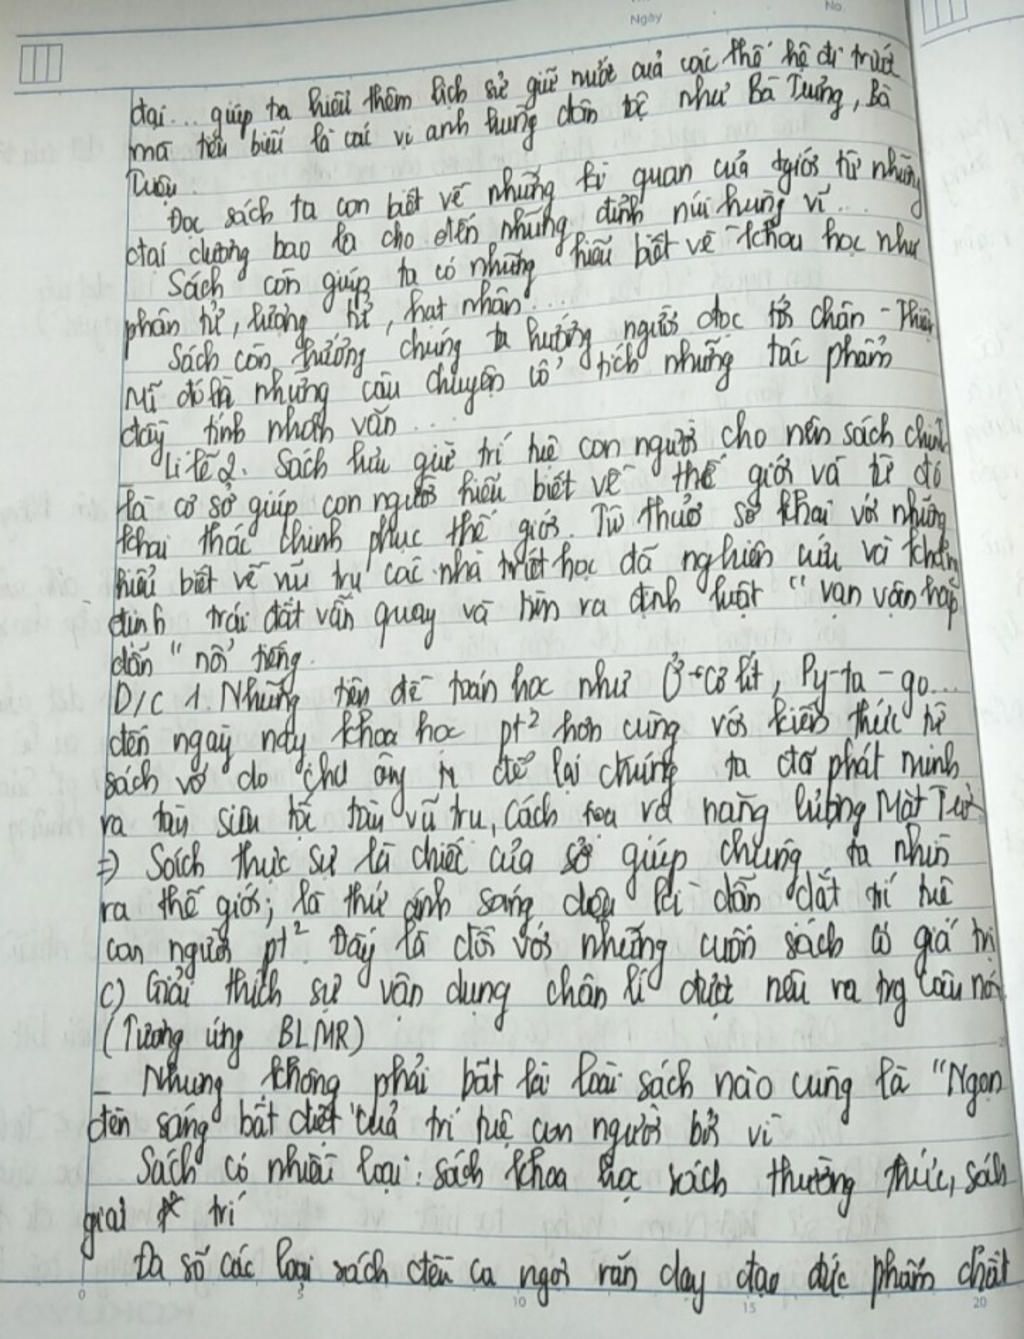 Ngày
No
đại... giúp ta hiểu thêm lịch sử giữ nước của các thế hệ đi trước
mà tiêu biểu là các vị anh hùng dân tộc như Bà Trưng, Bà
Triệu
Đọc sách ta còn biết về những kì quan của tgiới từ những
đại dương bao la cho đến những đỉnh núi hùng vĩ...
Sách còn giúp ta có những hiểu biết về khoa học như
phân tử, lượng tử, hạt nhân...
Sách còn hướng chúng ta hướng người đọc tới chân - Thiện
Mĩ đó là những câu chuyện cổ tích những tác phẩm
đầy tính nhân văn...
Lí lẽ 2. Sách lưu giữ trí tuệ con người cho nên sách chính
là cơ sở giúp con người hiểu biết về thế giới và từ đó
khai thác chinh phục thế giới. Từ thuở sơ khai với những
hiểu biết về vũ trụ các nhà triết học đã nghiên cứu và khẳng
định trái đất vẫn quay và tìm ra định luật "vạn vật hấp
dẫn" nổi tiếng.
D/C 1. Những tiên đề toán học như Ơ-cơ lít, Py-ta-go...
đến ngày nay khoa học pt² hơn cùng với kiến thức từ
sách vở do cha ông để lại chúng ta đã phát minh
ra tàu siêu tốc tàu vũ trụ, cách và năng lượng Mặt Trời
=> Sách thực sự là chiếc cửa sổ giúp chúng ta nhìn
ra thế giới; là thứ ánh sáng diệu kì dẫn dắt trí tuệ
con người pt². Đây là đối với những cuốn sách có giá trị
c) Giải thích sự vận dụng chân lí được nêu ra trg câu nói
(Tương ứng BLMR)
- Nhưng không phải bất kì loài sách nào cũng là "Ngọn
đèn sáng bất diệt" của trí tuệ con người bởi vì
Sách có nhiều loại: sách khoa học sách thường thức, sách
giải trí
Đa số các loại sách đều ca ngợi răn dạy đạo đức phẩm chất
0 5 10 15 20